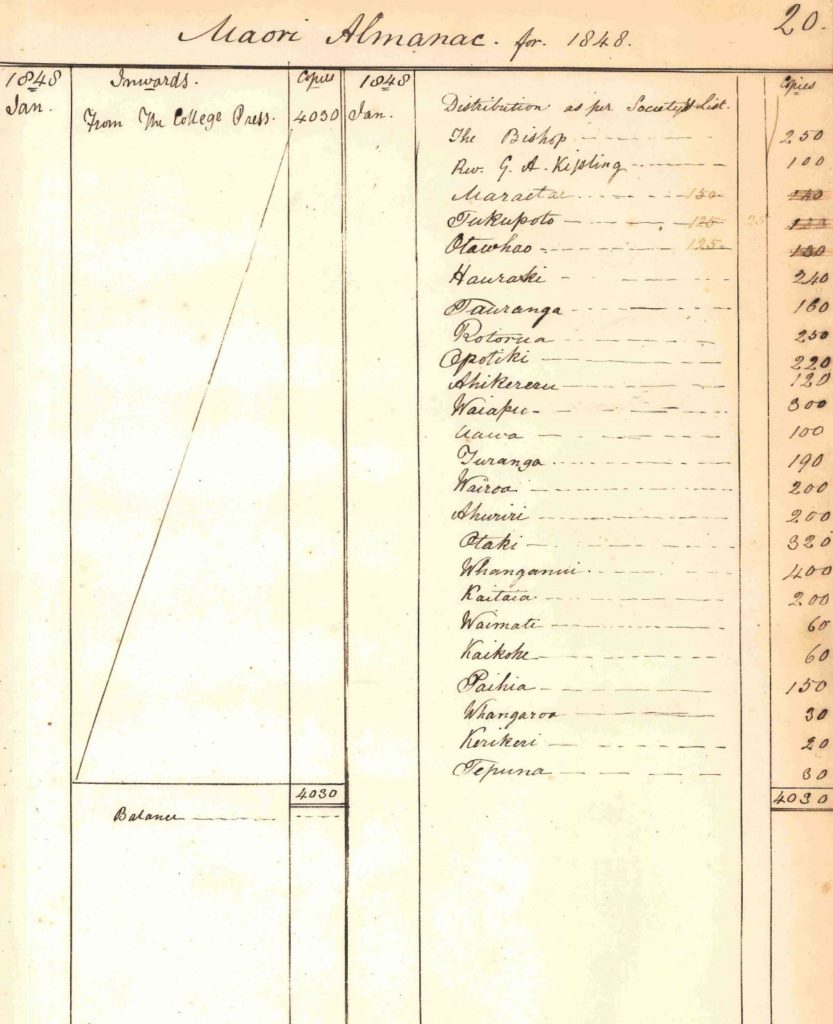 20.
Maori Almanac. for. 1848.
1848 Inwards. Copies 1848 Copies
Jan. From The College Press. 4030 Jan. Distribution as per Society's List.
The Bishop 250
Rev. G. A. Kissling 100
Maraetai 150
Tukupoto 125 25
Otawhao 125 150
Hauraki 240
Tauranga 160
Rotorua 250
Opotiki 220
Ahikereru 120
Waiapu 300
Uawa 100
Turanga 190
Wairoa 200
Ahuriri 200
Otaki 320
Whanganui 400
Kaitaia 200
Waimati 60
Kaikohe 60
Paihia 150
Whangaroa 30
Kerikeri 20
Tepuna 30
4030 4030
Balance